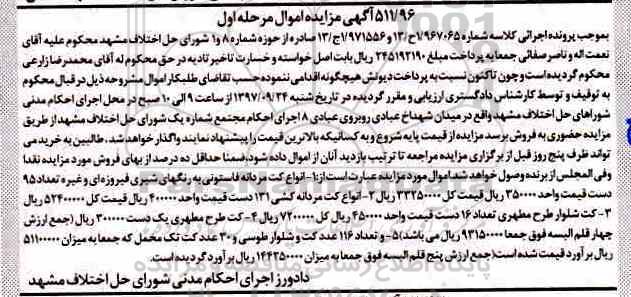 ۵۱۱/۹۶ آگهی مزایده اموال مرحله اول
بموجب پرونده اجرائی کلاسه شماره ۱/۹۶۷۰۶۵ح/۱۳ و ۱/۹۷۱۵۵۶ح/۱۳ صادره از حوزه شماره ۸ و۱ شورای حل اختلاف مشهد محکوم علیه آقای
نعمت اله و ناصر صفائی جمعا به پرداخت مبلغ ۲۴۵۱۹۲۱۹۰ ریال بابت اصل خواسته و خسارت تاخیر تادیه در حق محکوم له آقای محمدرضا زارعی
محکوم گردیده است و چون تاکنون نسبت به پرداخت دیونش هیچگونه اقدامی ننموده حسب تقاضای طلبکار اموال مشروحه ذیل در قبال محکوم
به توقیف و توسط کارشناس دادگستری ارزیابی و مقرر گردیده در تاریخ شنبه ۱۳۹۷/۰۹/۲۴ از ساعت ۹ الی ۱۰ صبح در محل اجرای احکام مدنی
شوراهای حل اختلاف مشهد واقع در میدان شهداخ عبادی روبروی عبادی ۸ اجرای احکام مجتمع شماره یک شورای حل اختلاف مشهد از طریق
مزایده حضوری به فروش برسد مزایده از قیمت پایه شروع و به کسانیکه بالاترین قیمت را پیشنهاد نمایند واگذار خواهد شد. طالبین به خرید می
تواند ظرف پنج روز قبل از برگزاری مزایده مراجعه تا ترتیب بازدید آنان از اموال داده شود،ضمنا حداقل ده درصد از بهای فروش مورد مزایده نقدا
وفی المجلس از برنده وصول خواهد شد.اموال مورد مزایده عبارت است از:۱-انواع کت مردانه فاستونی به رنگهای شیری فیروزه ای و غیره تعداد ۹۵
دست قیمت واحد ۳۵۰۰۰۰ ریال قیمت کل ۳۳۲۵۰۰۰۰ ریال ۲-انواع کت مردانه کشی ۱۳۱ دست قیمت واحد ۴۰۰۰۰۰ ریال قیمت کل ۵۲۴۰۰۰۰۰ ریال
۳-کت شلوار طرح مطهری تعداد ۱۶ دست قیمت واحد ۴۵۰۰۰۰ ریال کل ۷۲۰۰۰۰۰ ریال ۴-کت طرح مطهری یک دست ۳۰۰۰۰۰ ریال (جمع ارزش
چهار قلم البسه فوق جمعا ۹۳۱۵۰۰۰۰ ریال می باشد)۵-و تعداد ۱۱۶ عدد کت و شلوار طوسی و ۳۰ عدد کت تک مخمل که جمعا به میزان ۵۱۱۰۰۰۰۰
ریال برآورد قیمت شده است(جمع ارزش پنج قلم البسه فوق جمعا به میزان ۱۴۴۲۵۰۰۰۰ ریال برآورد گردیده است.
دادورز اجرای احکام مدنی شورای حل اختلاف مشهد